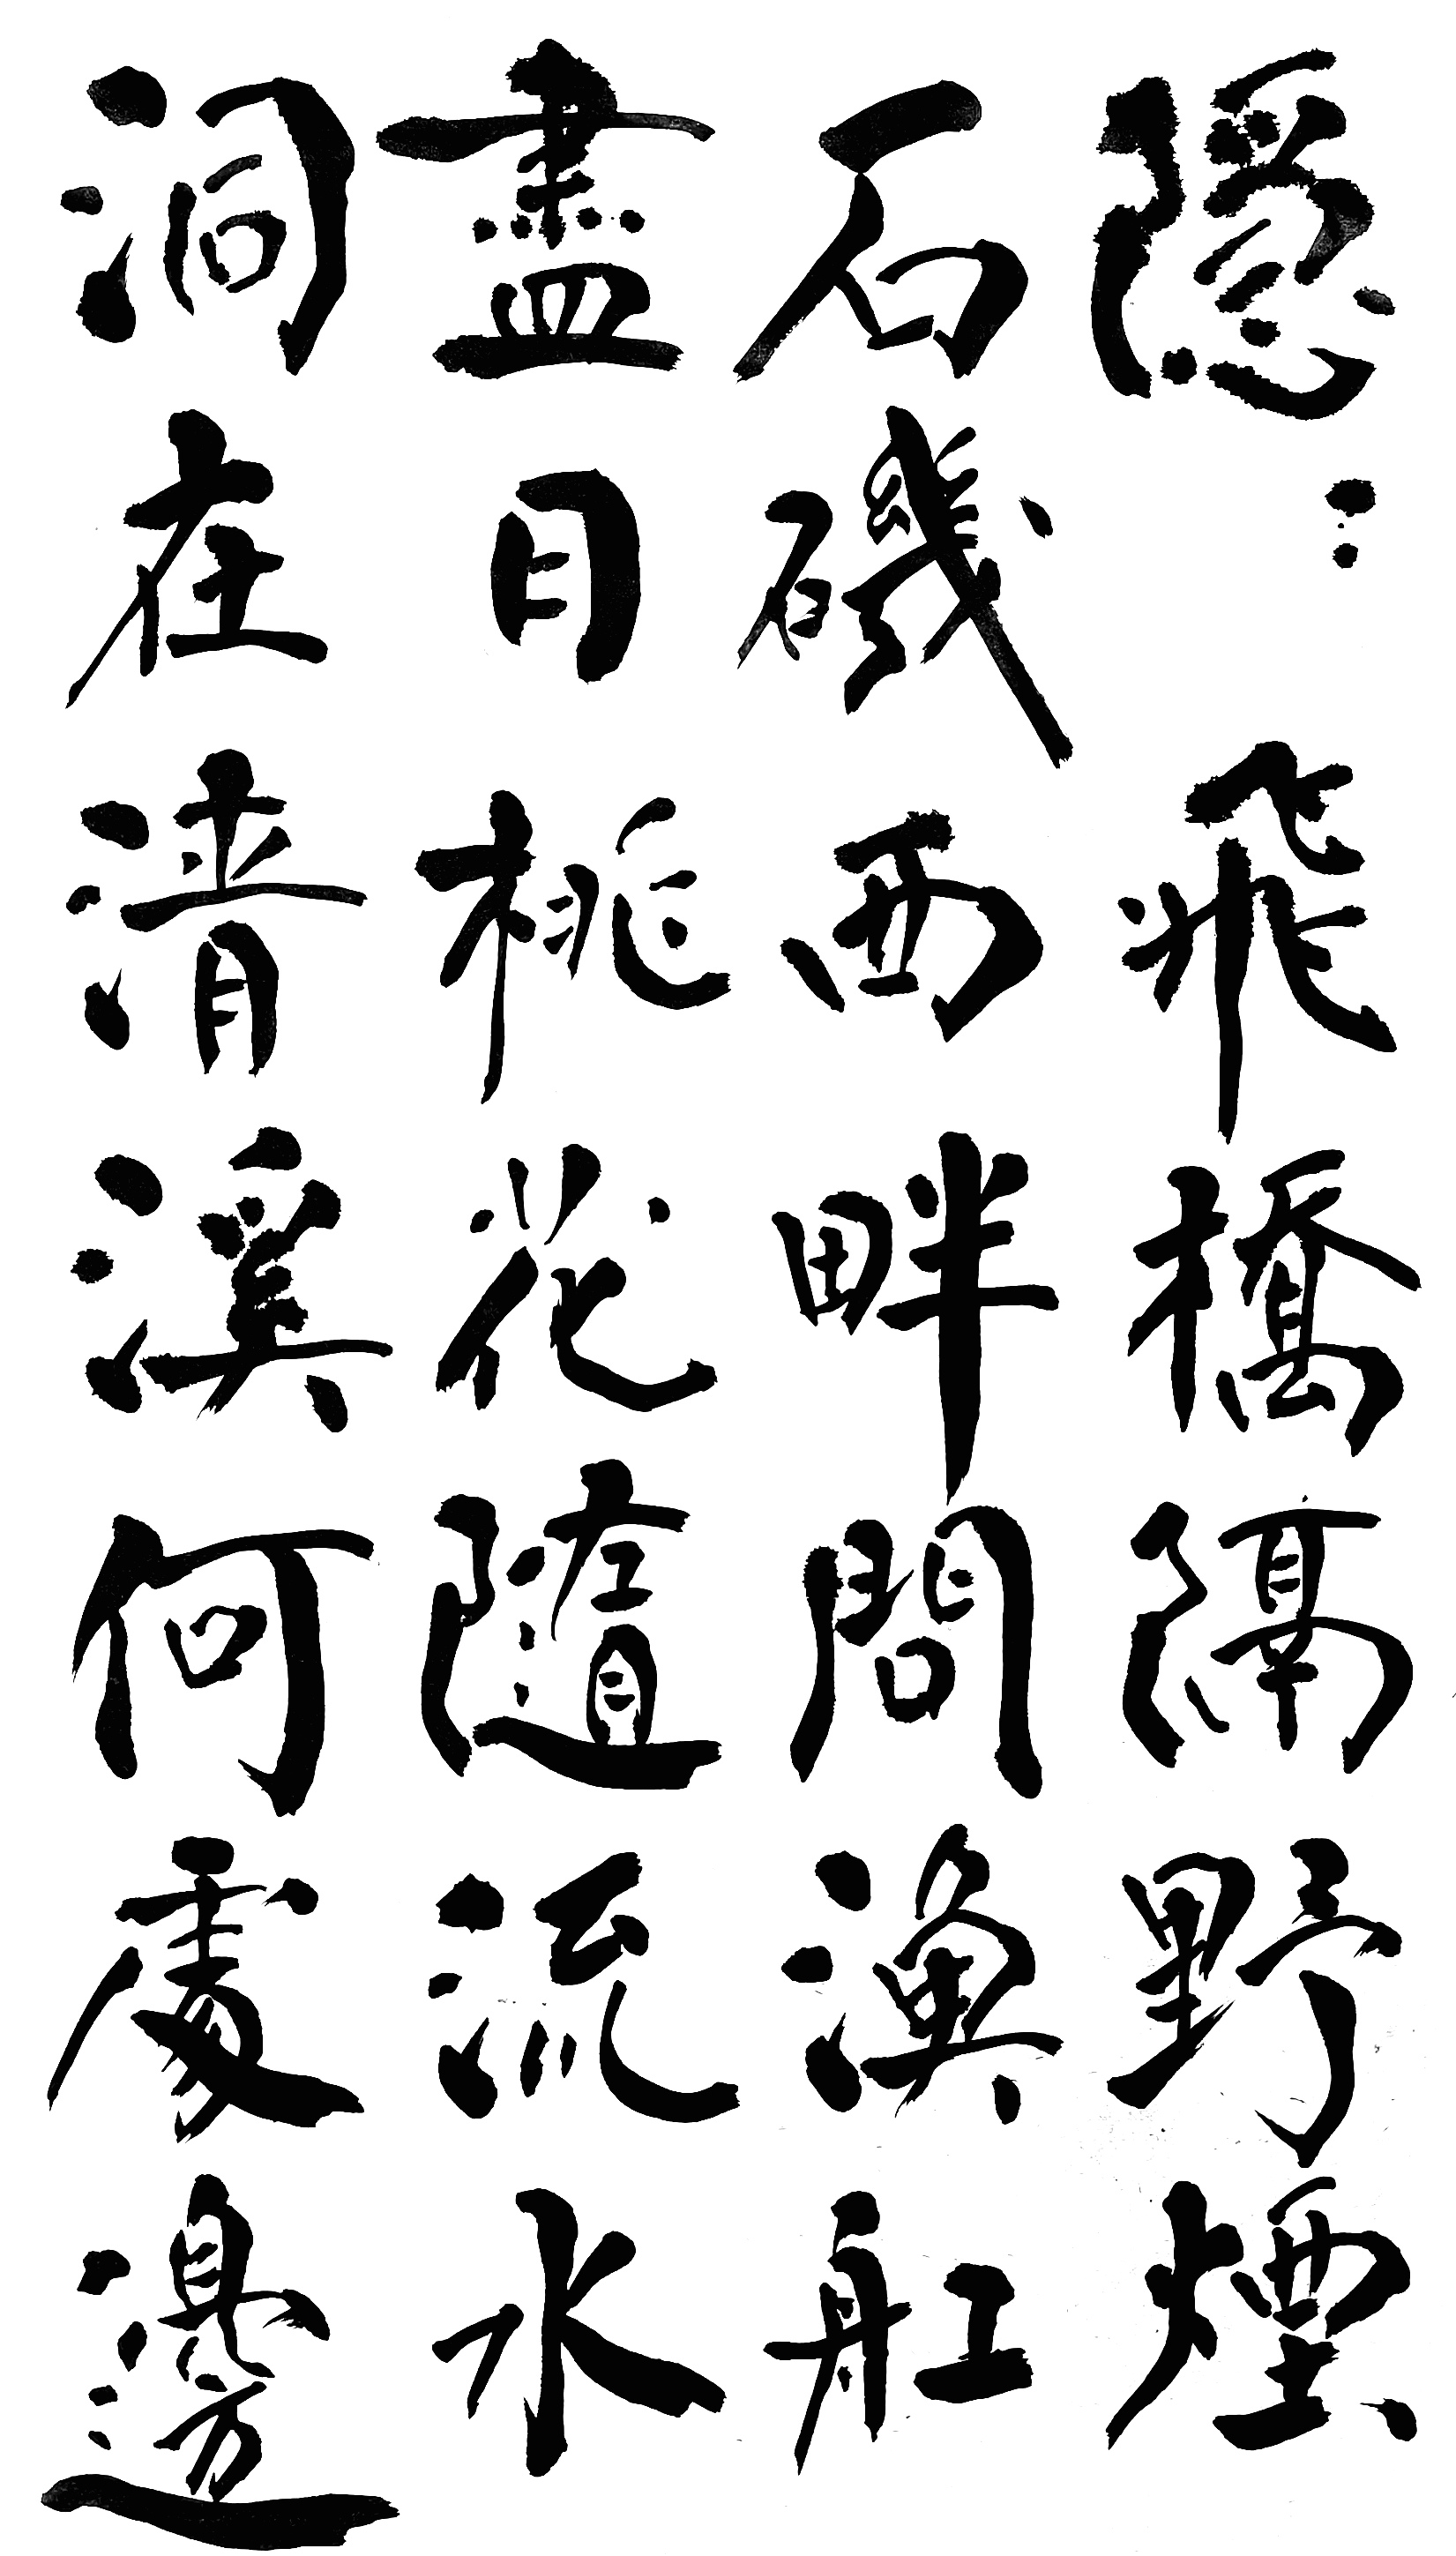 隱〻飛橋隔野煙
石磯西畔問漁舡
盡日桃花隨流水
洞在清溪何處邊